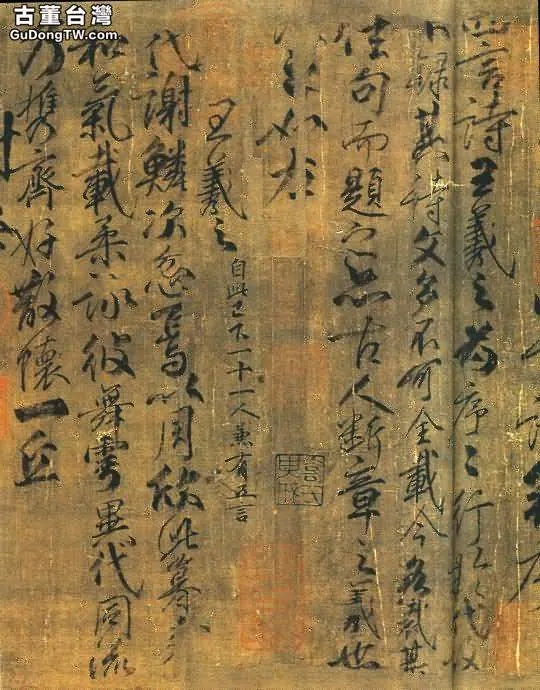 古董台灣
GuDongTW.com
四言詩王羲之為序〻行於代故
不錄其詩文多不可全載今各裁其
佳句而題之亦古人斷章之義也
如左
王羲之 自此已下一十一人兼有五言
代謝鱗次忽焉以周欣此暮春
和氣載柔詠彼舞雩異代同流
乃攜齊好散懷一丘